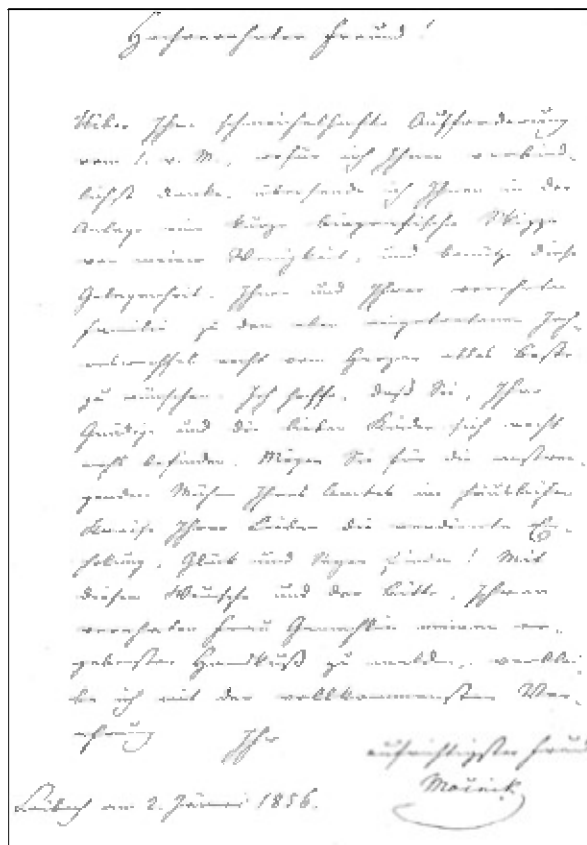 Hochverehrter Freund!
Ueber Ihre schmeichelhafte Aufforderung
vom 1. v. M., wofür ich Ihnen verbind-
lichst danke, übersende ich Ihnen in der
Anlage eine kurze biografische Skizze
von meiner Wenigkeit, und benütze diese
Gelegenheit, Ihnen und Ihrer verehrten
Familie zu dem eben eingetretenen Jah-
reswechsel recht vom Herzen alles Beste
zu wünschen. Ich hoffe, daß Sie, Ihre
Gnädige und die lieben Kinder sich recht
wohl befinden. Mögen Sie für die anstren-
genden Mühen Ihres Amtes im häuslichen
Kreise Ihrer Lieben die verdiente Er-
holung, Glück und Segen finden! Mit
diesem Wunsche und der Bitte, Ihrer
verehrten Frau Gemahlin meinen er-
gebensten Handkuß zu melden, verblei-
be ich mit der vollkommensten Ver-
ehrung Ihr
aufrichtigster Freund
Močnik
Laibach am 2. Jänner 1856.